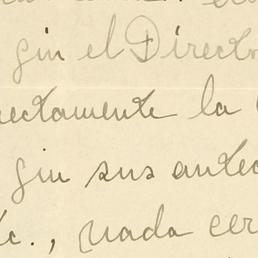 gin el Direct
ectamente la
gin sus antec
c., nada cer